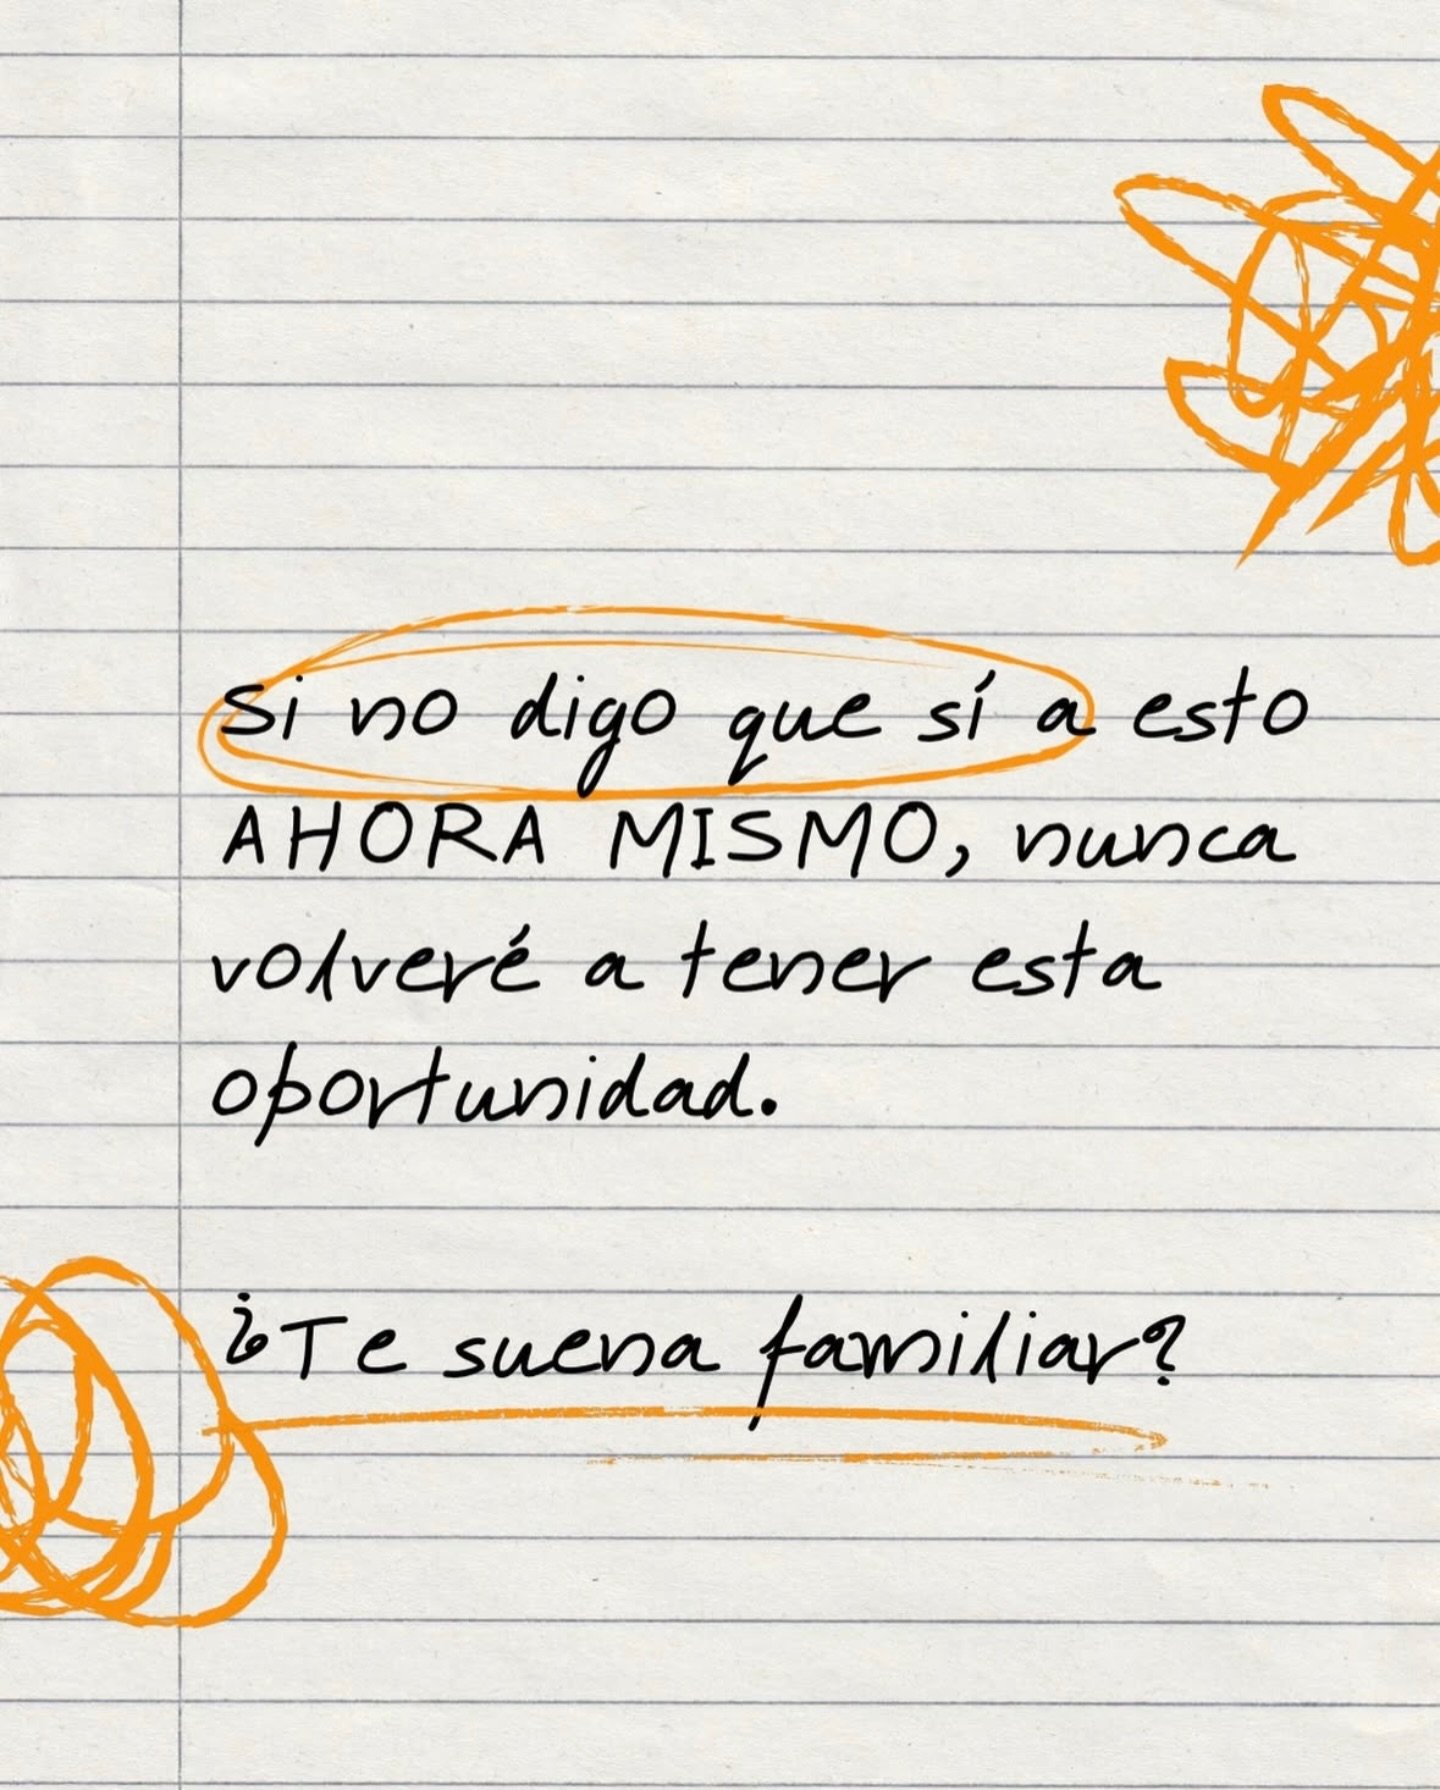 Si no digo que sí a esto
AHORA MISMO, nunca
volveré a tener esta
oportunidad.
¿Te suena familiar?